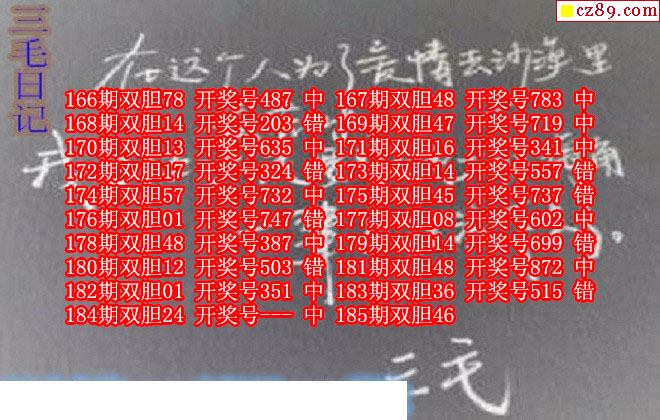 cz89.com
三毛日记
在这个人为了爱情去沙海里
166期双胆78 开奖号487 中 167期双胆48 开奖号783 中
168期双胆14 开奖号203 错 169期双胆47 开奖号719 中
170期双胆13 开奖号635 中 171期双胆16 开奖号341 中
172期双胆17 开奖号324 错 173期双胆14 开奖号557 错
174期双胆57 开奖号732 中 175期双胆45 开奖号737 错
176期双胆01 开奖号747 错 177期双胆08 开奖号602 中
178期双胆48 开奖号387 中 179期双胆14 开奖号699 错
180期双胆12 开奖号503 错 181期双胆48 开奖号872 中
182期双胆01 开奖号351 中 183期双胆36 开奖号515 错
184期双胆24 开奖号--- 中 185期双胆46
三毛